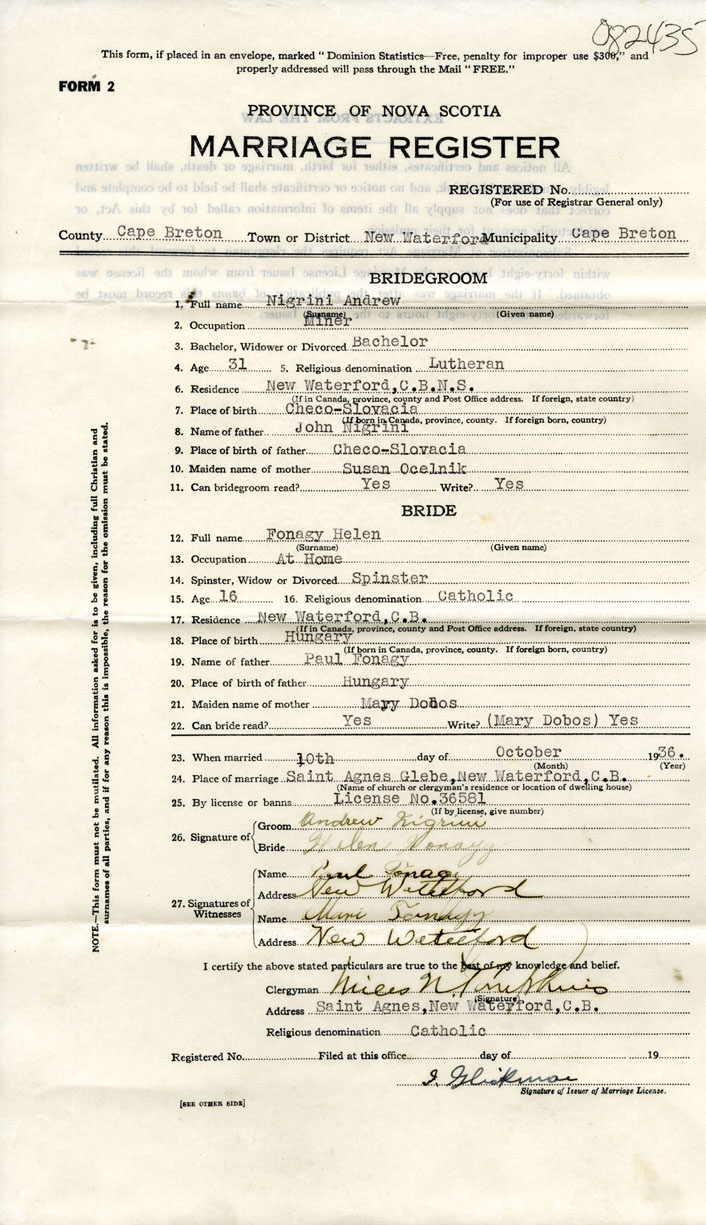 082435
This form, if placed in an envelope, marked " Dominion Statistics—Free, penalty for improper use $300," and
properly addressed will pass through the Mail " FREE."
FORM 2
PROVINCE OF NOVA SCOTIA
MARRIAGE REGISTER
REGISTERED No.
(For use of Registrar General only)
County Cape Breton Town or District New Waterford Municipality Cape Breton
BRIDEGROOM
1. Full name Nigrini Andrew
(Surname) (Given name)
2. Occupation Miner
3. Bachelor, Widower or Divorced Bachelor
4. Age 31 5. Religious denomination Lutheran
6. Residence New Waterford,C.B.N.S.
(If in Canada, province, county and Post Office address. If foreign, state country)
7. Place of birth Checo-Slovacia
(If born in Canada, province, county. If foreign born, country)
8. Name of father John Nigrini
9. Place of birth of father Checo-Slovacia
10. Maiden name of mother Susan Ocelnik
11. Can bridegroom read? Yes Write? Yes
BRIDE
12. Full name Fonagy Helen
(Surname) (Given name)
13. Occupation At Home
14. Spinster, Widow or Divorced Spinster
15. Age 16 16. Religious denomination Catholic
17. Residence New Waterford,C.B.
(If in Canada, province, county and Post Office address. If foreign, state country)
18. Place of birth Hungary
(If born in Canada, province, county. If foreign born, country)
19. Name of father Paul Fonagy
20. Place of birth of father Hungary
21. Maiden name of mother Mary Dobos
22. Can bride read? Yes Write? (Mary Dobos) Yes
23. When married 10th day of October 1936.
(Month) (Year)
24. Place of marriage Saint Agnes Glebe,New Waterford,C.B.
(Name of church or clergyman's residence or location of dwelling house)
25. By license or banns License No.36581
(If by license, give number)
26. Signature of Groom Andrew Nigrini
Bride Helen Fonagy
27. Signatures of Witnesses Name Paul Fonagy
Address New Weterford
Name Mari Fonagy
Address New Weterford
I certify the above stated particulars are true to the best of my knowledge and belief.
Clergyman Miles N. Tompkins
(Signature)
Address Saint Agnes,New Waterford,C.B.
Religious denomination Catholic
Registered No. Filed at this office day of 19
I. Glickman
Signature of Issuer of Marriage License.
[SEE OTHER SIDE]
NOTE.—This form must not be mutilated. All information asked for is to be given, including full Christian and
surnames of all parties, and if for any reason this is impossible, the reason for the omission must be stated.